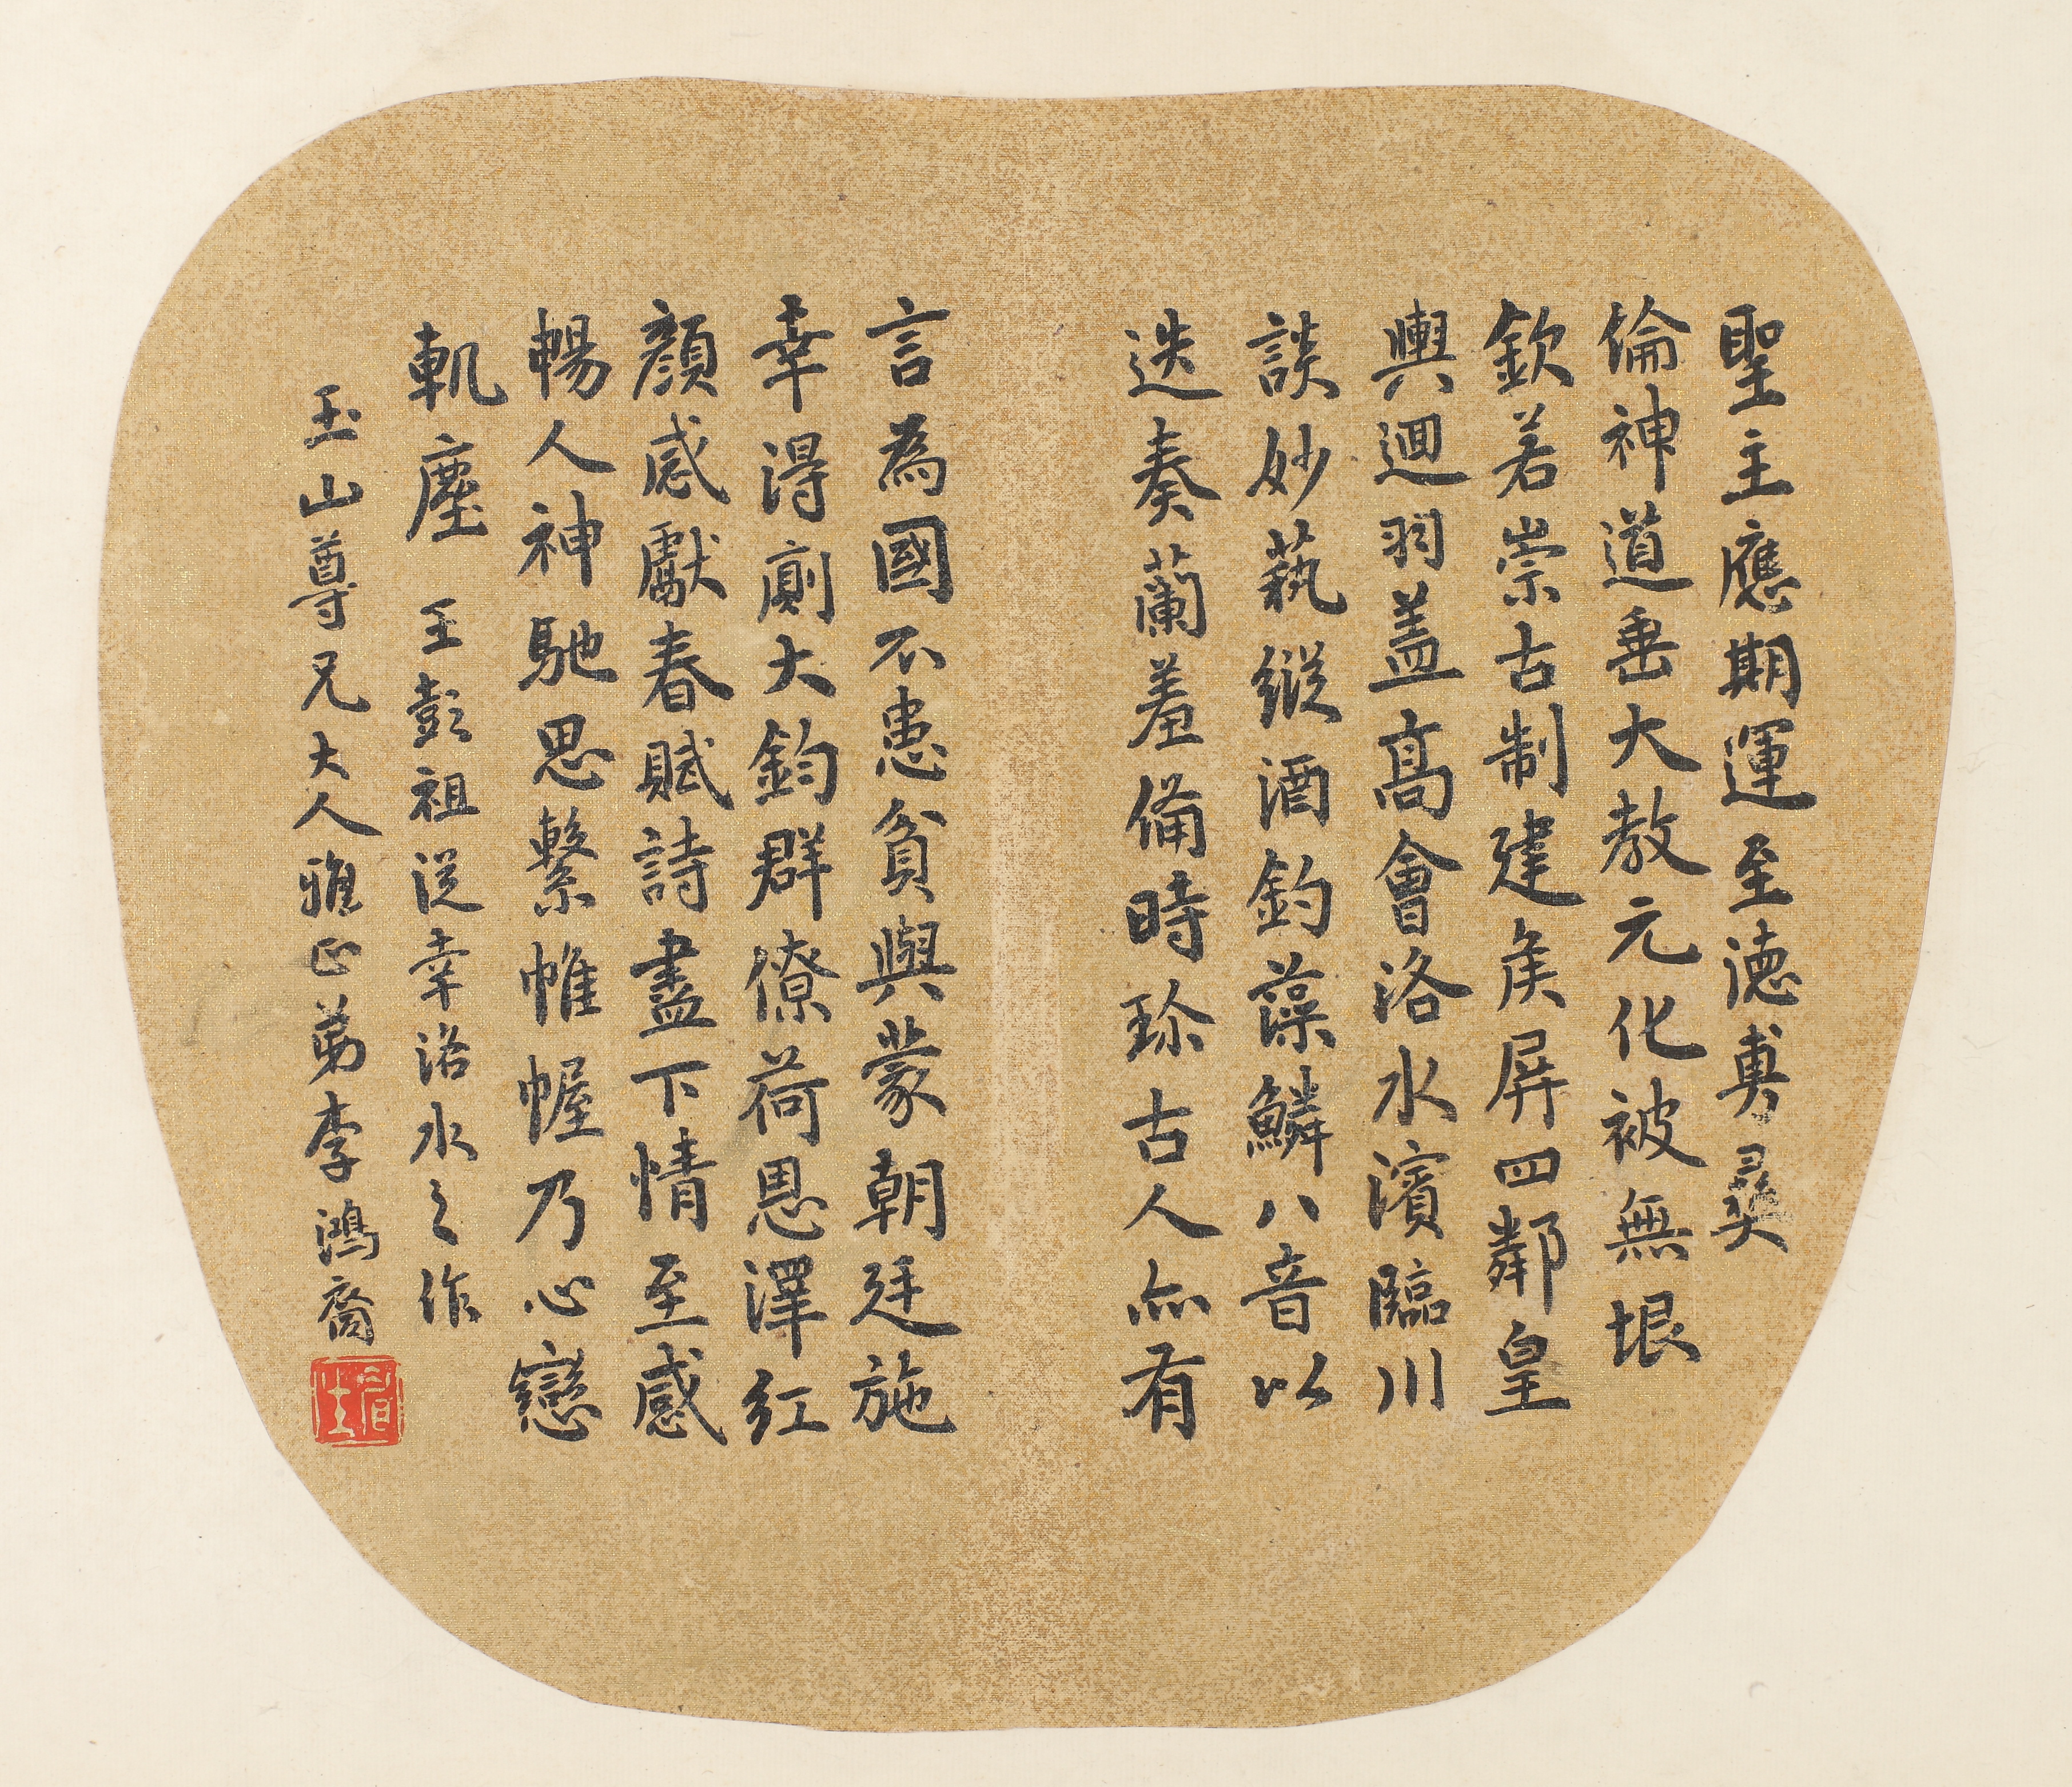 聖主應期運至德敷彝
倫神道垂大教元化被無垠
欽若崇古制建矦屏四鄰皇
輿迴羽盖高會洛水濱臨川
談妙藝縱酒釣藻鱗八音以
迭奏蘭羞備時珍古人亦有
言為國不患貧與蒙朝廷施
幸得廁大鈞群僚荷恩澤红
顏感獻春賦詩盡下情至感
暢人神馳思繫帷幄乃心戀
軌塵 王彭祖從幸洛水之作
玉山尊兄大人雅正弟李鴻裔
眉生